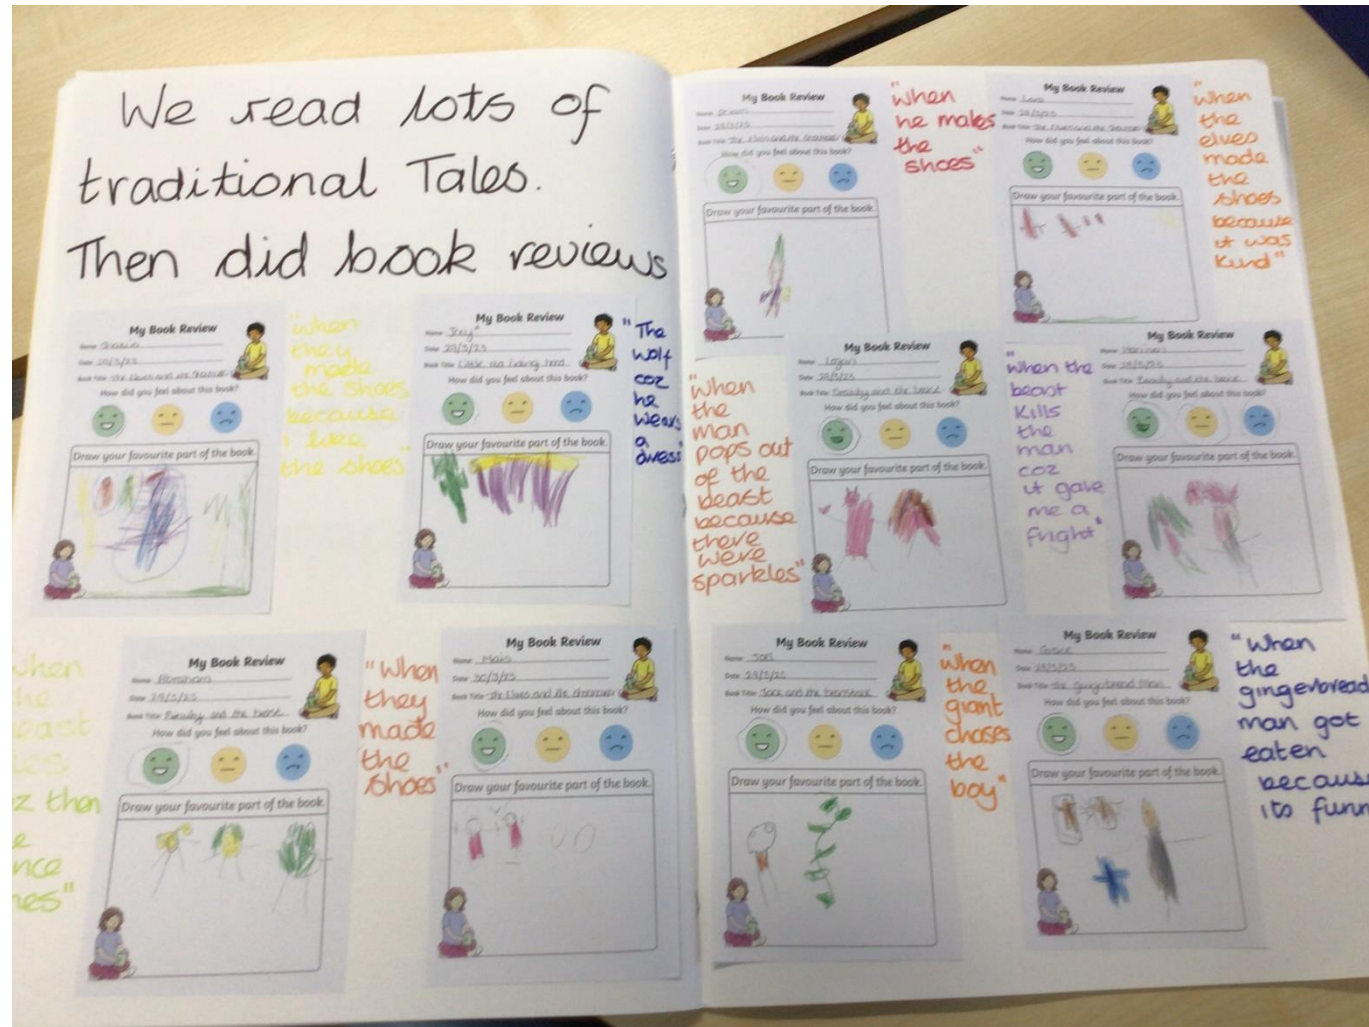 We read lots of
traditional Tales.
Then did book reviews
My Book Review
Name
Date 29/5/25
Book Title The Elves and the Shoemaker
How did you feel about this book?
Draw your favourite part of the book.
"When
they
made
the shoes
because
I like
the shoes"
My Book Review
Name
Date 29/5/25
Book Title Little red riding hood
How did you feel about this book?
Draw your favourite part of the book.
"The
wolf
coz
he
wears
a
dress"
My Book Review
Name Abraham
Date 29/5/25
Book Title Beauty and the beast
How did you feel about this book?
Draw your favourite part of the book.
when
he
east
z then
e
nce
es"
My Book Review
Name
Date 30/5/25
Book Title The Elves and the shoemaker
How did you feel about this book?
Draw your favourite part of the book.
"When
they
made
the
shoes"
My Book Review
Name
Date 29/5/25
Book Title The Elves and the Shoemaker
How did you feel about this book?
Draw your favourite part of the book.
"When
he makes
the
shoes"
My Book Review
Name
Date 29/5/25
Book Title The Elves and the Shoemaker
How did you feel about this book?
Draw your favourite part of the book.
"When
the
elves
made
the
shoes
because
it was
Kind"
My Book Review
Name Logan
Date 29/5/25
Book Title Beauty and the beast
How did you feel about this book?
Draw your favourite part of the book.
"When
the
man
pops out
of the
beast
because
there
were
sparkles"
My Book Review
Name Harrison
Date 29/5/25
Book Title Beauty and the beast
How did you feel about this book?
Draw your favourite part of the book.
"When the
beast
Kills
the
man
coz
it gave
me a
fright"
My Book Review
Name
Date 29/5/25
Book Title Jack and the beanstalk
How did you feel about this book?
Draw your favourite part of the book.
"When
the
giant
chases
the
boy"
My Book Review
Name Grace
Date 29/5/25
Book Title The gingerbread man
How did you feel about this book?
Draw your favourite part of the book.
"When
the
gingerbread
man got
eaten
becaus
its funn